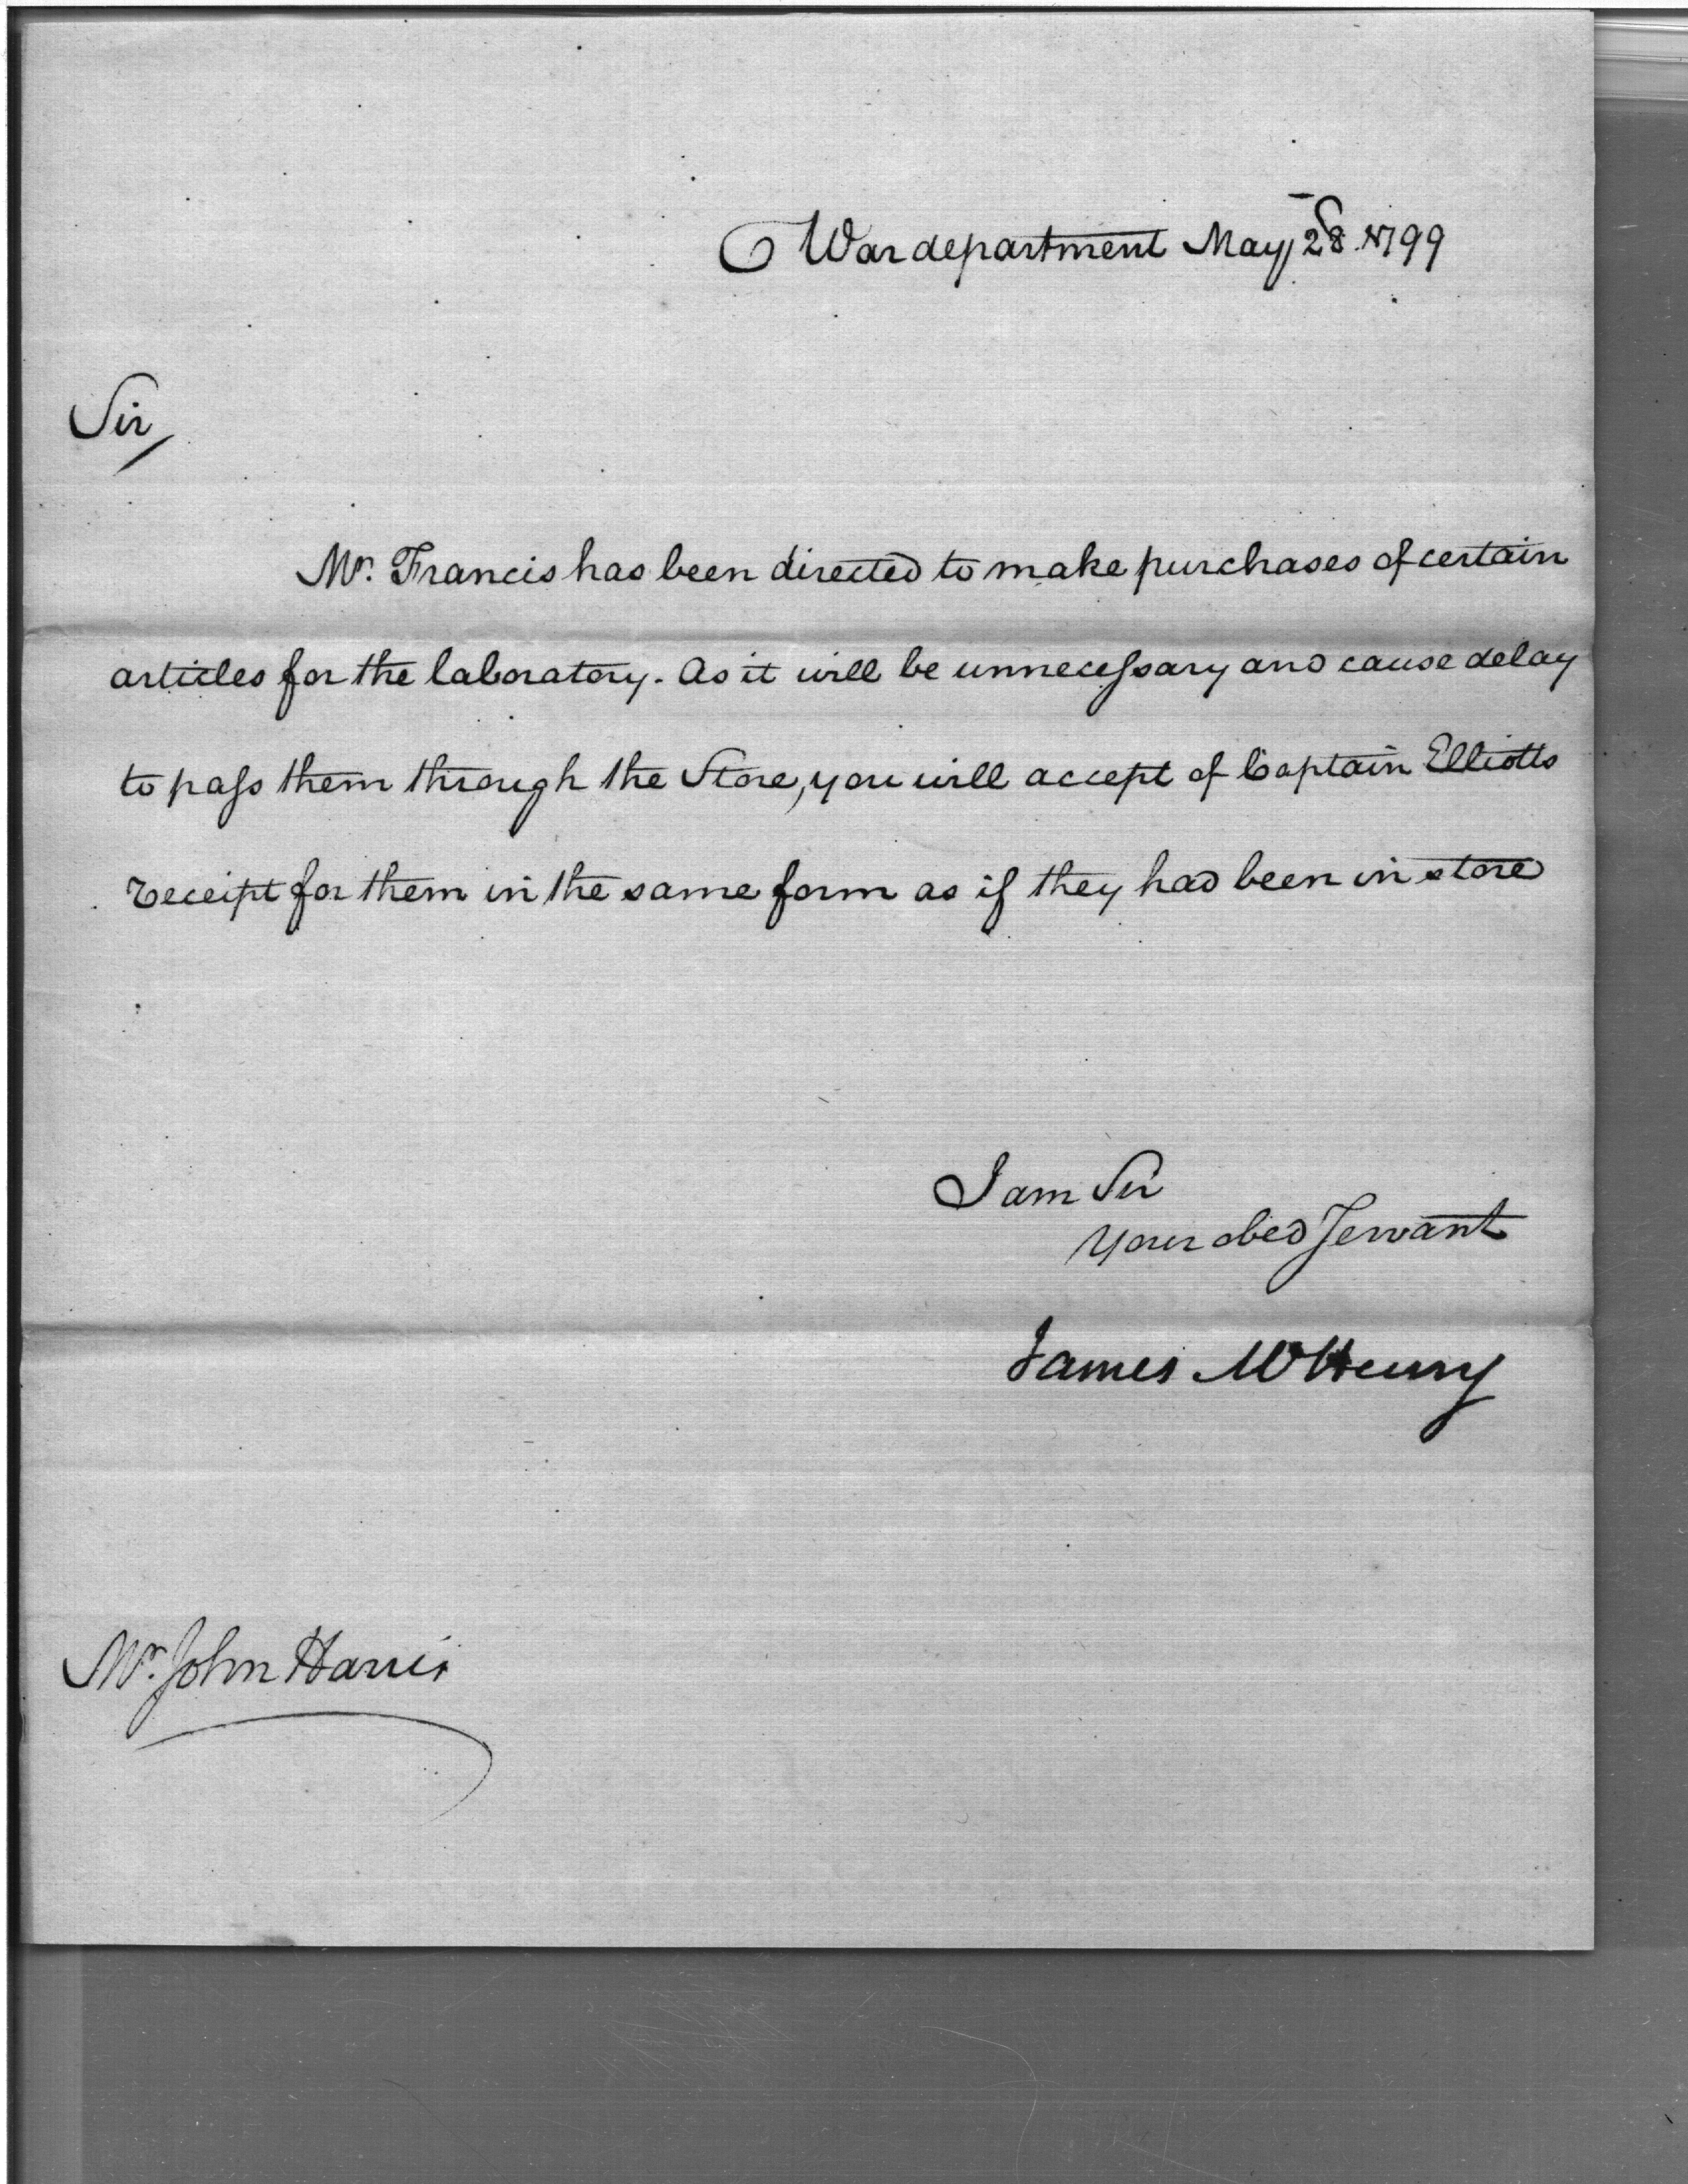 War department May 28 1799
Sir,
Mr. Francis has been directed to make purchases of certain
articles for the laboratory. As it will be unnecessary and cause delay
to pass them through the Store, you will accept of Captain Elliotts
receipt for them in the same form as if they had been in store
I am Sir
your obed Servant
James McHenry
Mr. John Harris